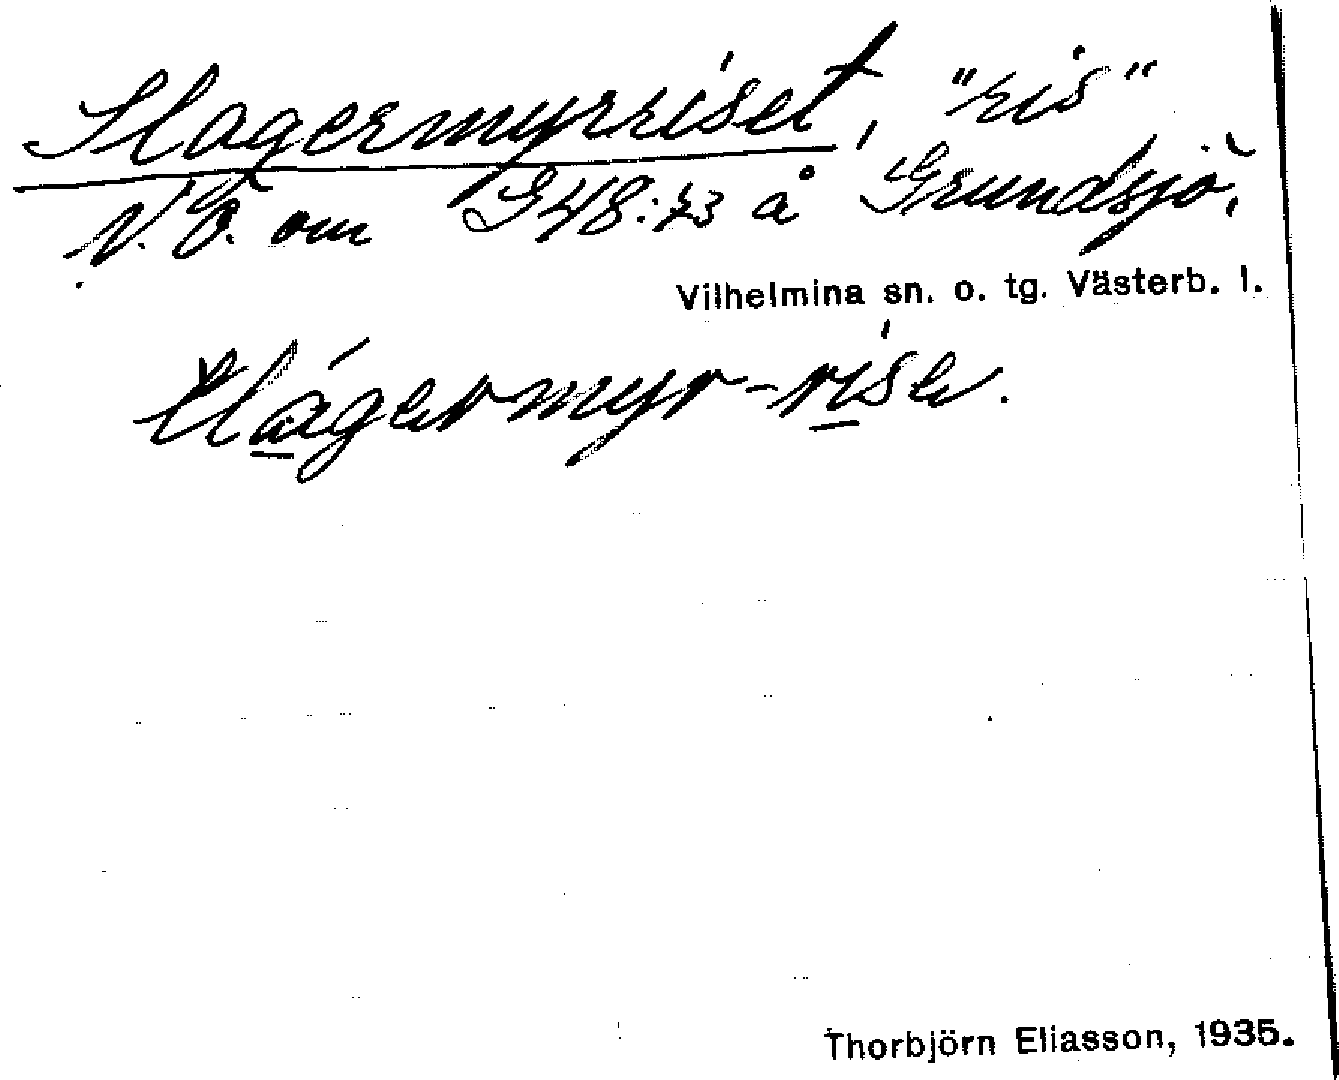 Slagermyrriset, "ris"
N.Ö. om G48:73 å Grundsjö.
Vilhelmina sn. o. tg. Västerb. l.
-risa.
Thorbjörn Eliasson, 1935.